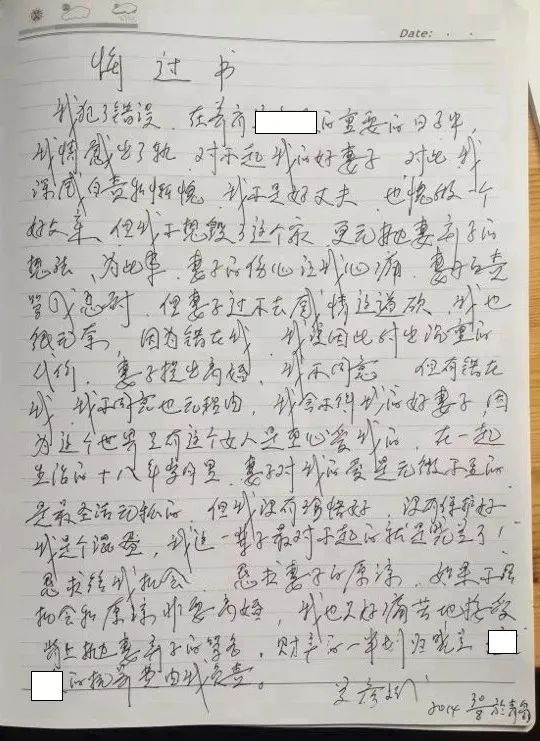 Date: . .
悔过书
我犯了错误.在养育的重要的日子中,
我情感出了轨.对不起我的好妻子.对此我
深感自责和惭愧.我不是好丈夫.也愧做一个
好父亲.但我不想毁了这个家.更无抛妻弃子的
想法.为此事.妻子的伤心让我心痛.妻
但妻子过不去感情这道砍.我也
很无奈,因为错在我.我因此付出沉重的
代价.妻子提出离婚,我不同意 但有错在
我.我不同意也无理由,我舍不得我的好妻子,因
为这个世界只有这个女人是真心爱我的.在一起
生活的十八年岁月里.妻子对我的爱是无微不至的
是最圣洁无私的 但我没有珍惜好.没有保护好
我是个混蛋,我这一辈子最对不起的就是晓兰了!
恳求给我机会 恳求妻子的原谅.如果不给
机会和原谅非要离婚,我也只好痛苦地接受
背上抛妻弃子的骂名.财产的一半划归晓兰
的抚养费由我负责。
2014 30/8 於青岛